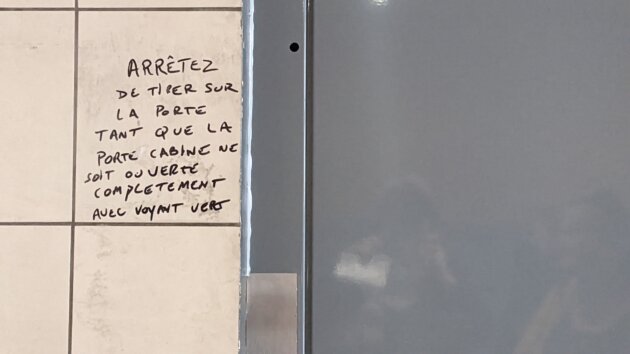 ARRÊTEZ
DE TIPER SUR
LA PORTE
TANT QUE LA
PORTE CABINE NE
SOIT OUVERTE
COMPLETEMENT
AVEC VOYANT VERT